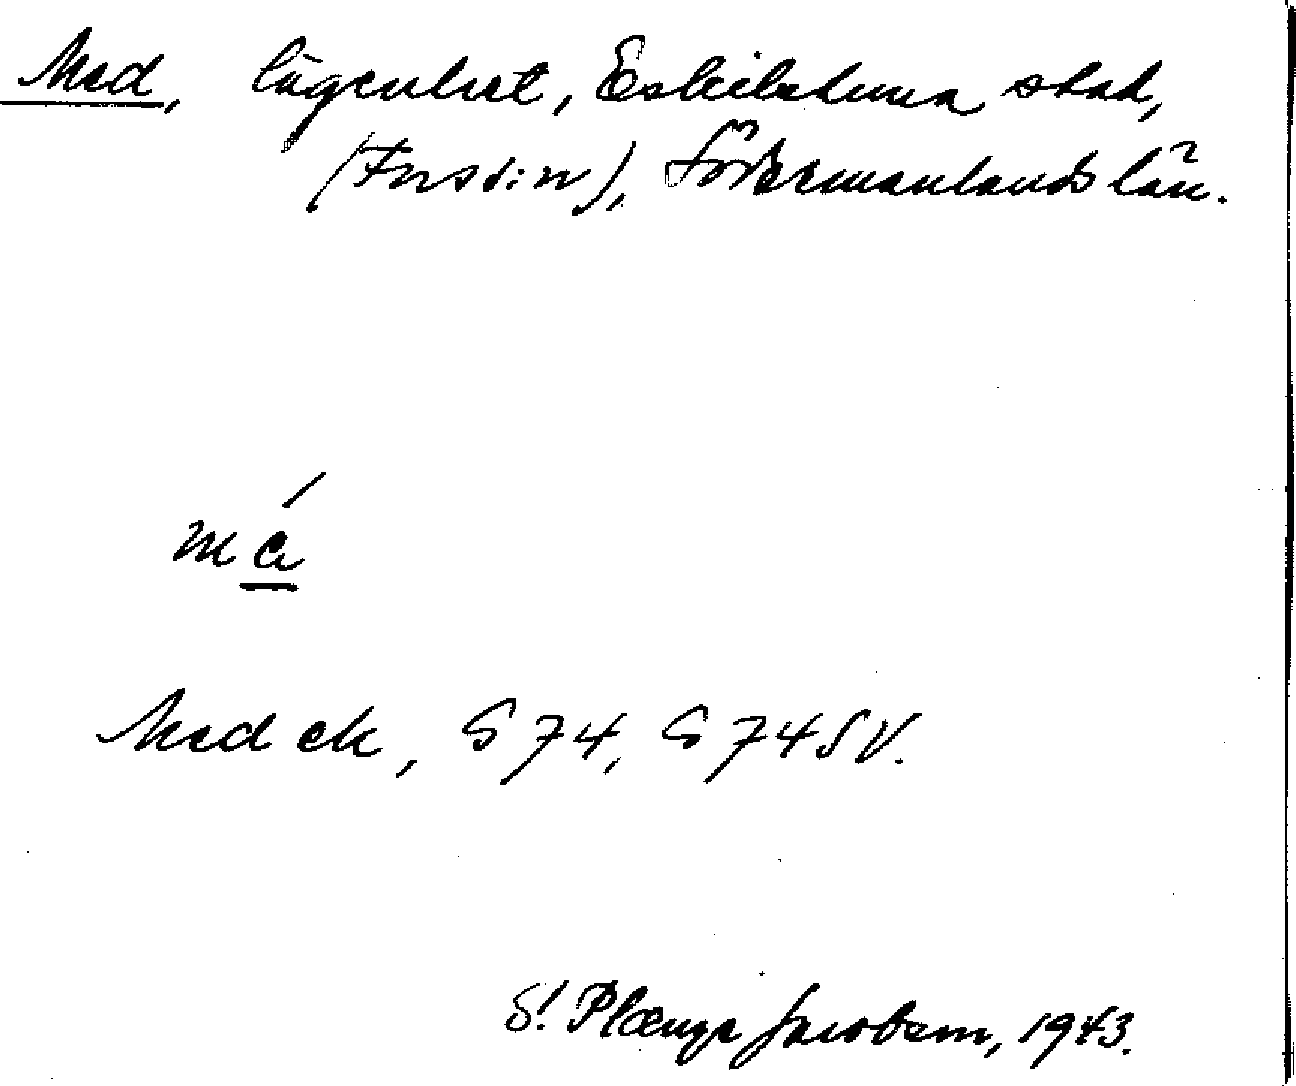 Med, lägenhet, Eskilstuna stad,
(Fors s:n), Södermanlands län.
mé
Med ek, G 74, G 74 SV.
S! Plænge Jacobson, 1943.